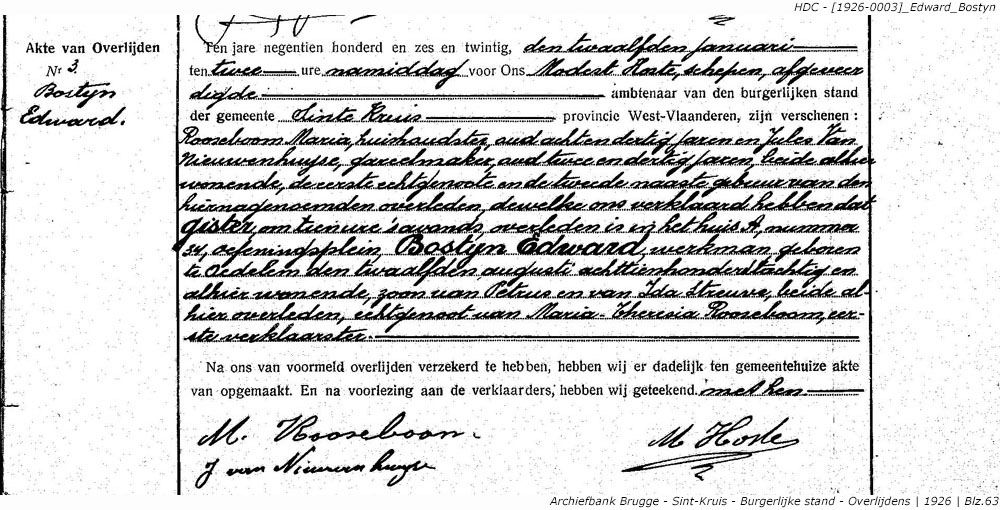 HDC - [1926-0003]_Edward_Bostyn
Akte van Overlijden
Nr 3.
Bostyn
Edward.
Ten jare negentien honderd en zes en twintig, den twaalfden januari
ten twee ure namiddag voor Ons Modest Hoste, schepen, afgeveer
digde ambtenaar van den burgerlijken stand
der gemeente Sinte Kruis provincie West-Vlaanderen, zijn verschenen :
Rooseboom Maria, huishoudster, oud achtendertig jaren en Jules Van
Nieuwenhuyse, gareelmaker, oud twee en dertig jaren, beide alhier
wonende, de eerste echtgenoote en de tweede naaste gebuur van den
hiernagenoemden overleden, dewelke ons verklaard hebben dat
gister, om tien ure 's avonds, overleden is in het huis A, nummer
34, oefeningsplein, Bostyn Edward, werkman, geboren
te Oedelem den twaalfden augusti achttienhonderd tachtig en
alhier wonende, zoon van Petrus en van Ida Streuve, beide al-
hier overleden, echtgenoot van Maria-Theresia Rooseboom, eer-
ste verklaarster.
Na ons van voormeld overlijden verzekerd te hebben, hebben wij er dadelijk ten gemeentehuize akte
van opgemaakt. En na voorlezing aan de verklaarders, hebben wij geteekend. met hen.
M. Rooseboom.
M Hoste
J van Nieuwenhuyse
Archiefbank Brugge - Sint-Kruis - Burgerlijke stand - Overlijdens | 1926 | Blz.63